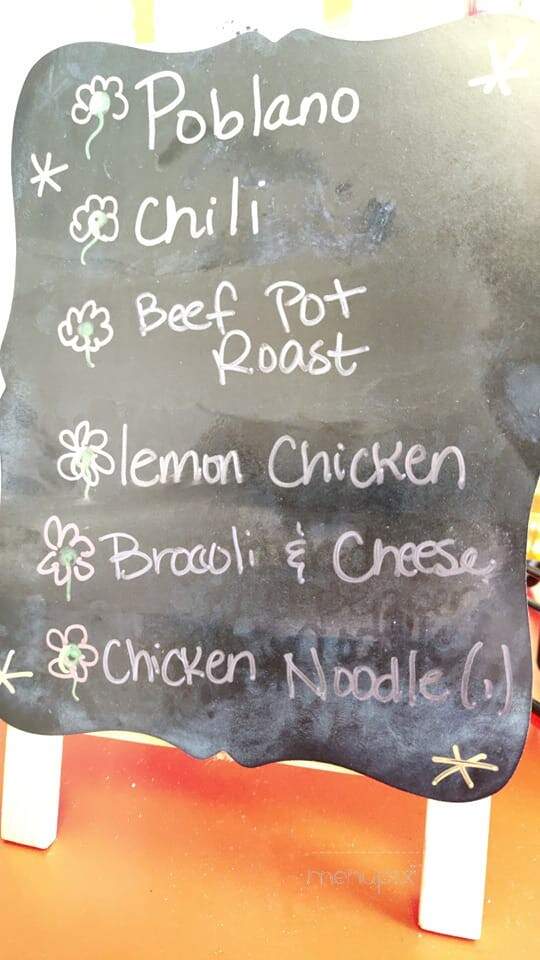 Poblano
Chili
Beef Pot
Roast
lemon Chicken
Brocoli & Cheese
Chicken Noodle (1)
menupix